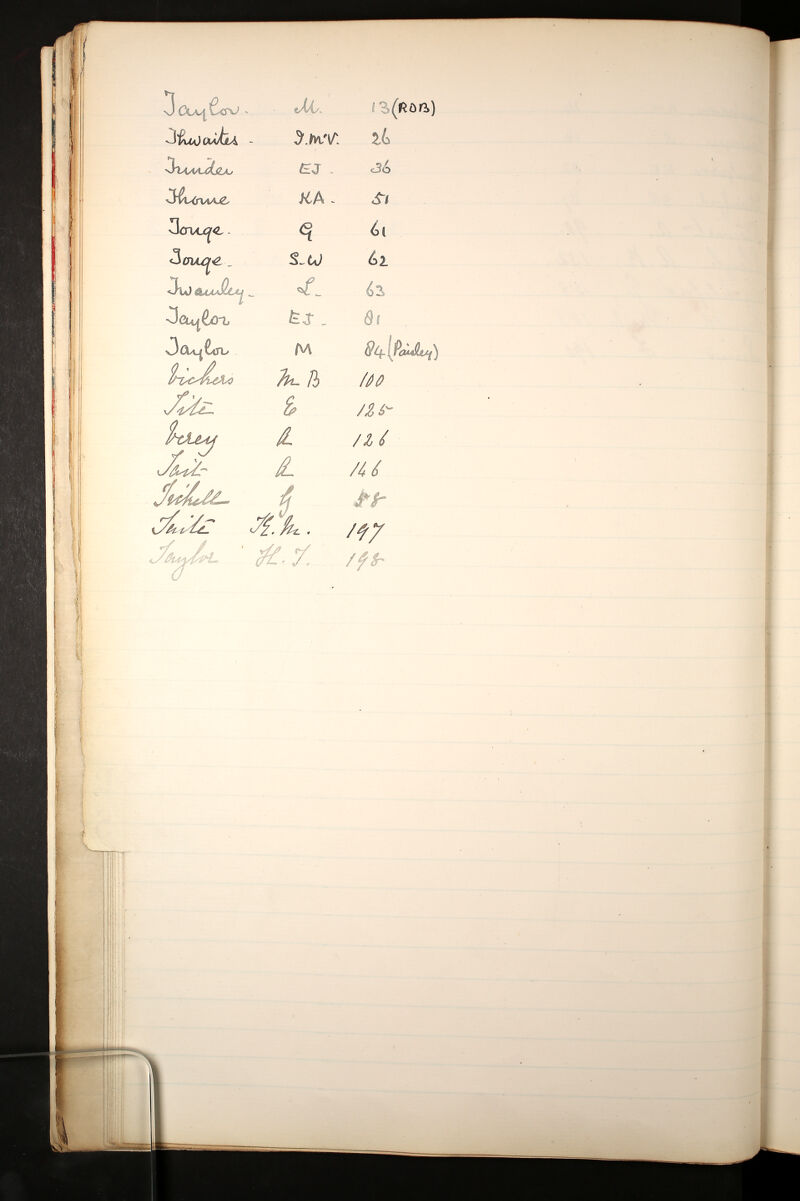 Taylor. M. 13 (ROB)
Thwaites - I.M.V. 26
EJ. 36
Thorne KA. 51
Tonge. G 61
Tonge. S.W 62
Twamley - L. 63
Taylor EJ. 81
Taylor M 84 (Paisley)
Vickers M B 100
Tite E 125
Verey A 126
Tait A 146
Tickell G 58
Taite K.M. 197
Taylor H.T. 198